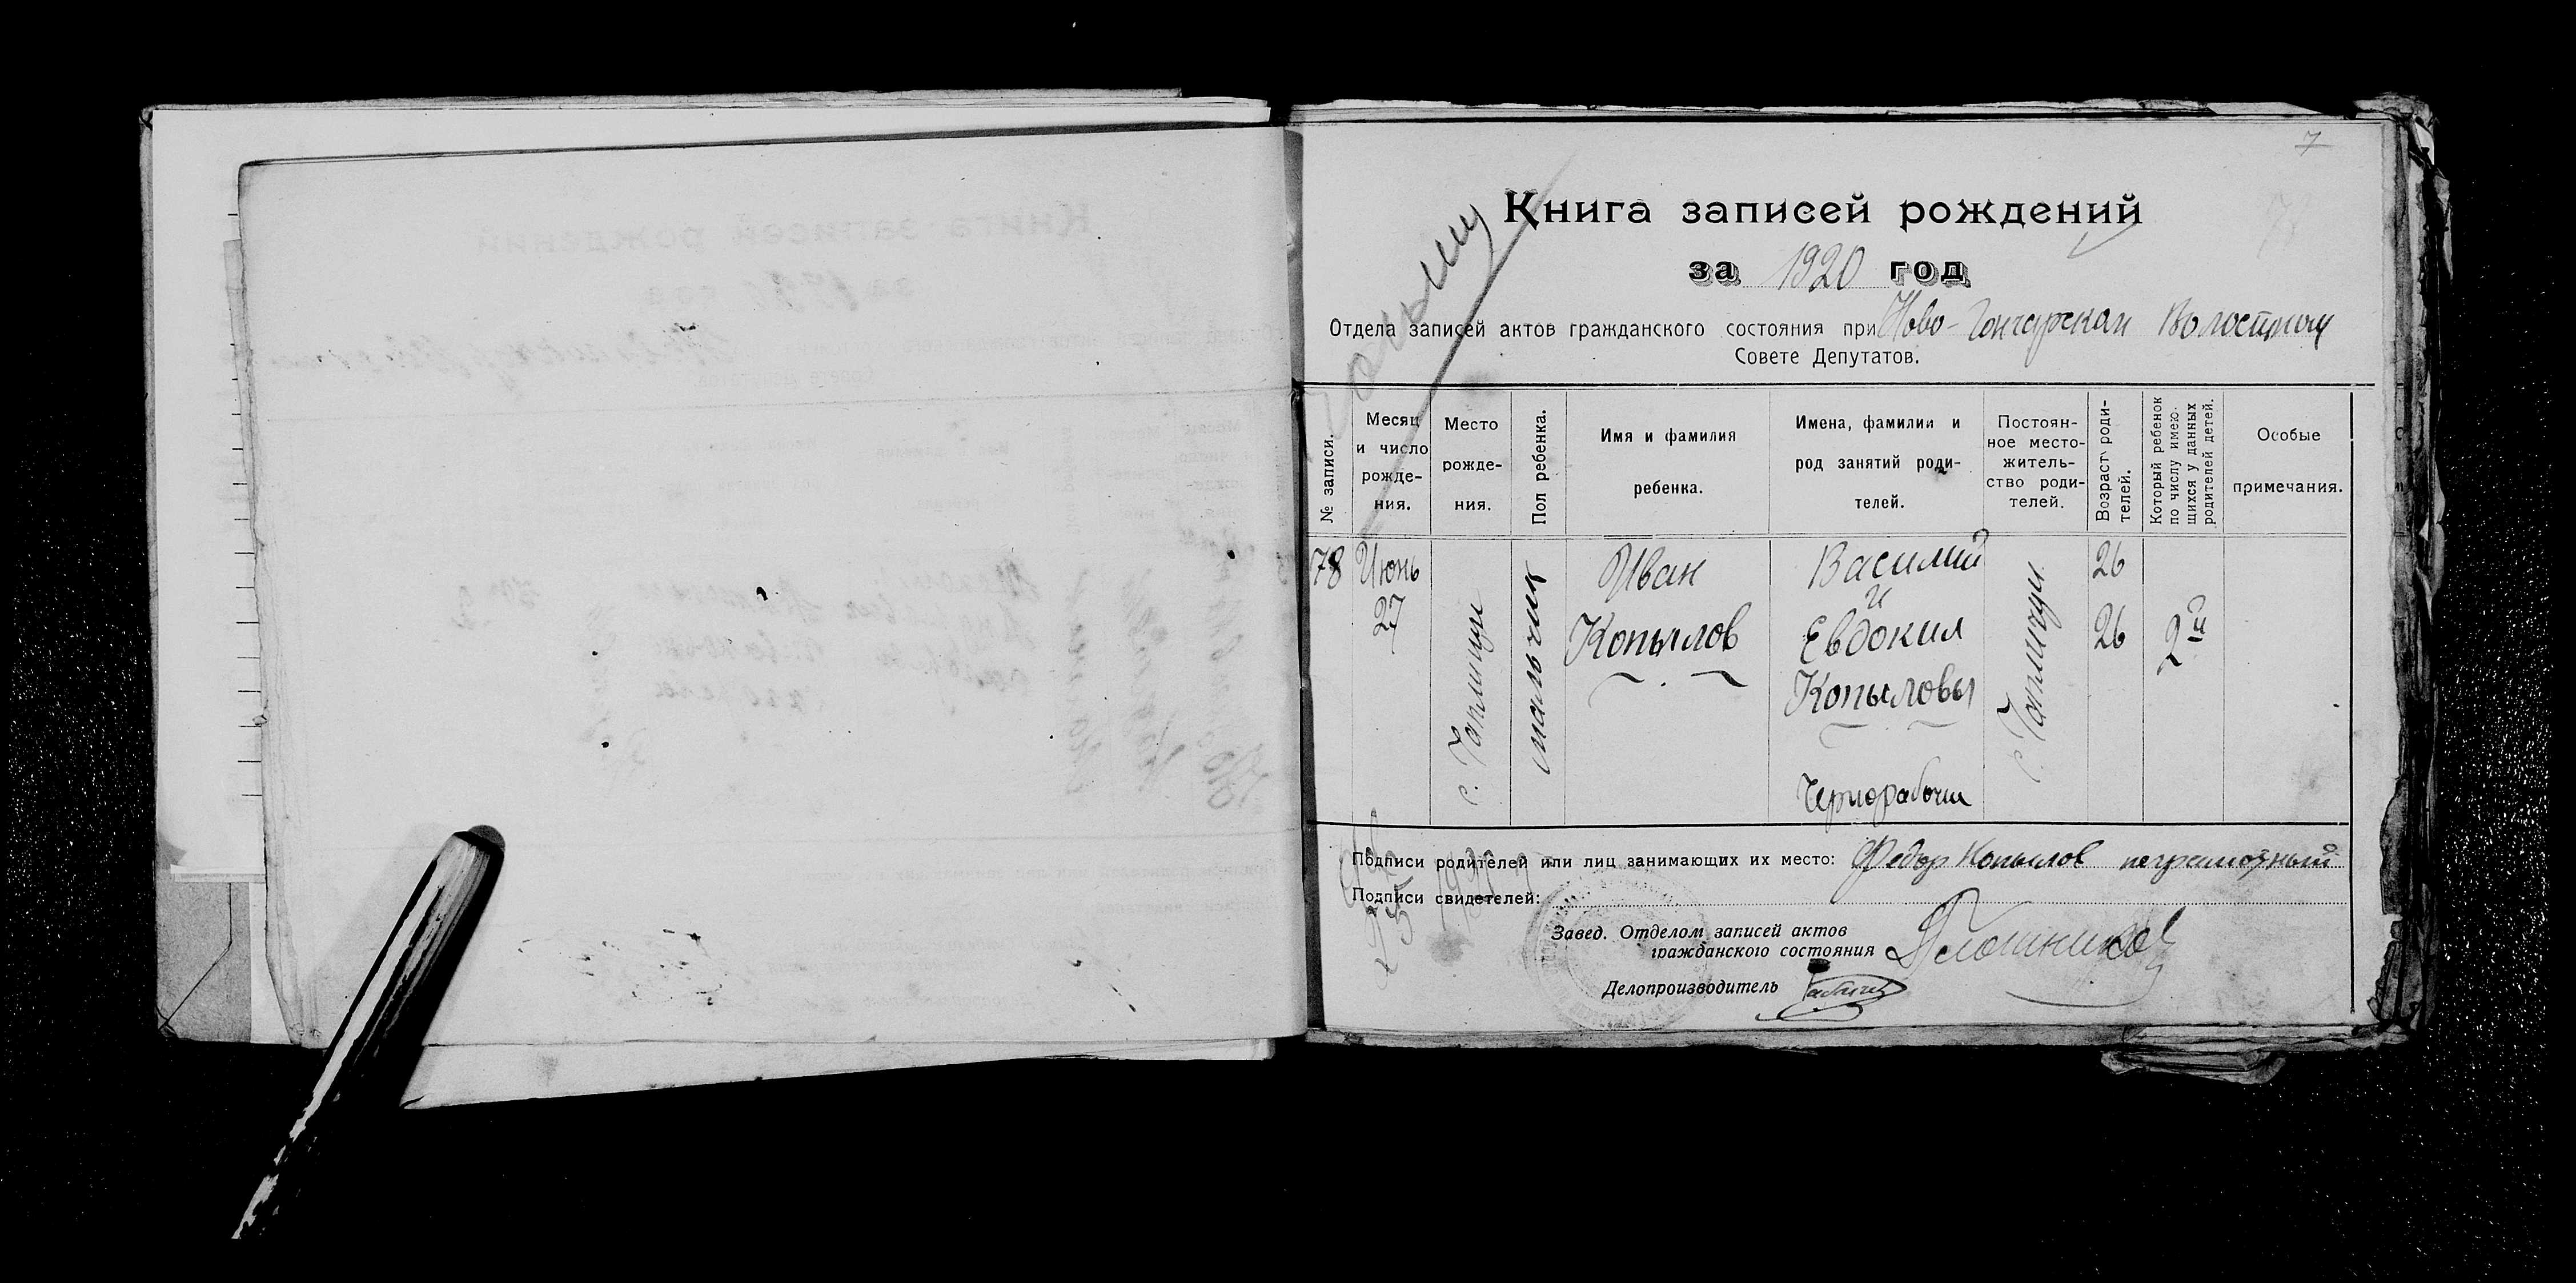 7
Книга записей рождений
за 1920 год
Отдела записей актов гражданского состояния при Ново-Гончарском Волостном
Совете Депутатов.
№ записи.
Месяц и число рожде-
ния.
Место рожде-
ния.
Пол ребенка.
Имя и фамилия
ребенка.
Имена, фамилии и
род занятий роди-
телей.
Постоян-
ное место-
житель-
ство роди-
телей.
Возраст роди-
телей.
Который ребенок
по числу имею-
щихся у данных
родителей детей.
Особые
примечания.
78
Июнь
27
с.
мальчик
Иван
Копылов
Василий
и
Евдокия
Копыловы
Чернорабочий
с.
26
26
2й
Подписи родителей или лиц занимающих их место: Федор Копылов неграмотный
Подписи свидетелей:
Завед. Отделом записей актов
гражданского состояния
Делопроизводитель